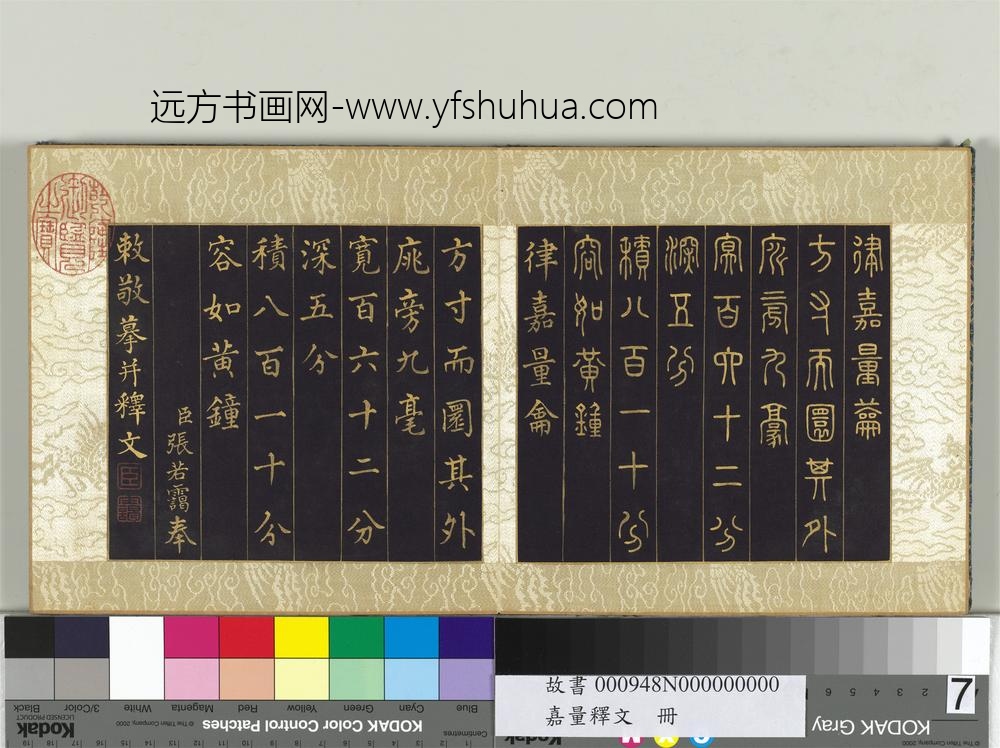 远方书画网-www.yfshuhua.com
乾隆御覽之寶
律嘉量龠
方寸而圜其外
庣旁九毫
冪百六十二分
深五分
積八百一十分
容如黃鐘
律嘉量龠
方寸而圜其外
庣旁九毫
寬百六十二分
深五分
積八百一十分
容如黃鐘
臣張若靄奉
敕敬摹并釋文
臣
Blue Cyan Green Yellow Red Magenta White 3/Color Black
KODAK Color Control Patches
© The Tiffen Company, 2000
Kodak
LICENSED PRODUCT
KODAK Gray
故書 000948N000000000
嘉量釋文 冊
7